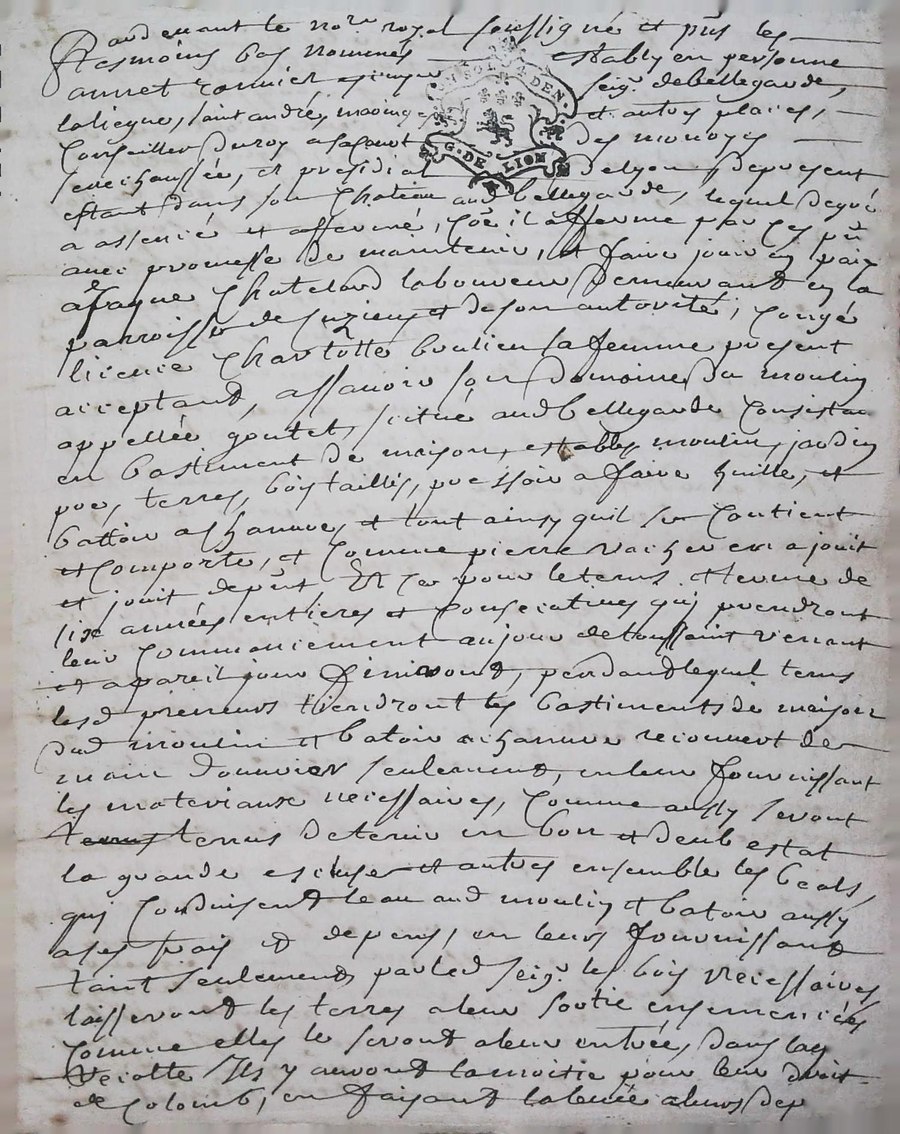 Pardevant le nore royal soussigné et pnts les
tesmoins bas nommés estably en personne
annet ranvier escuyer seigr. de bellegarde,
la liegue, saint andré, maing et autres places,
Conseiller du roy assesseur des monoyes
SIX SOLS DEN.
G. DE LION
seneschaussée, et presidial de lyon, de present
estant dans son Chateau aud bellegarde, lequel de gré
a assencé et affermé, Coe il afferme par ces pnt
avec promesse de maintenir, et faire jouir en paix
a Chatelard laboureur demeurant en la
parroisse de suzieu et de son autorité, Congé
licence Charlotte boulieu sa femme present
acceptant, assavoir son Domaine du moulin
appellée goutet, scitué aud bellegarde Consistan
en bastiment de maison, estable, moulin, jardin
pré, terres, bois taillis, pressoir a faire huille, et
battoir a chanvre, et tout ainsy quil se Contient
et Comporte, et Comme pierre vacher en a jouit
et jouit de pnt Et Ce pour le tems et terme de
six années entieres et Consecutives quy prendront
leur Commancement au jour de toussaint venant
et a pareil jour finiront, pendant lequel tems
lesd preneurs tiendront les bastiments de maison
dud moulin et batoir a chanvre recouvert de
main douvrier seulement, en leur fournissant
les materiaux necessaires, Comme aussy seront
tenus tenus de tenir en bon et deub estat
la grande escluse et autres ensemble les beals,
quy Conduisent leau aud moulin et batoir aussy
a ses frais et depens, en leurs fournissant
tant seulement par led seigr. les bois necessaires
laisseront les terres a leur sortie ensemencées
Comme elles le seront a leur entrée, dans lad
recolte Ils y auront la moitié pour leur droit
de Colomb, en faisant la levée a leurs dep